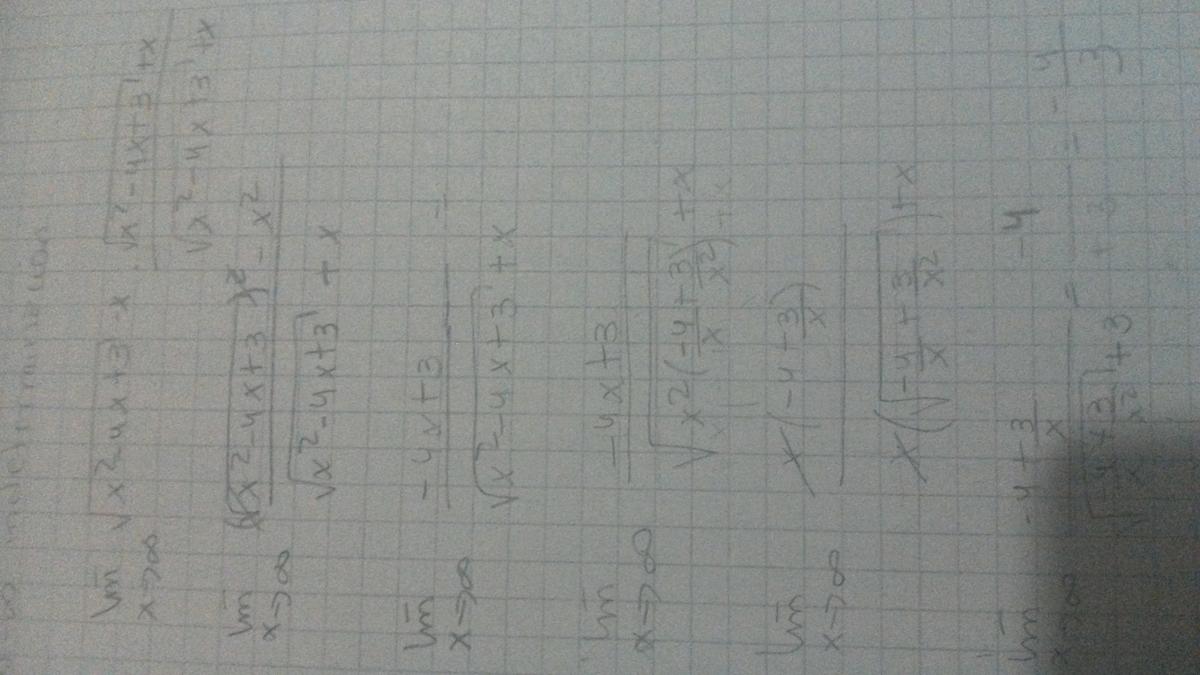 lim √(x²-4x+3) x · (√(x²-4x+3) +x)/(√(x²-4x+3) +x)
x→∞
lim ((√(x²-4x+3))² - x²)/(√(x²-4x+3) + x)
x→∞
lim (-4x+3)/(√(x²-4x+3) +x)
x→∞
lim (-4x+3)/(√(x²(-4/x+3/x²)) +x)
x→∞
lim x(-4+3/x)/(x(√(-4/x+3/x²))+x)
x→∞
lim (-4+3/x)/(√(-4/x+3/x²)+3) = -4/(+3) = -4/3
x→∞